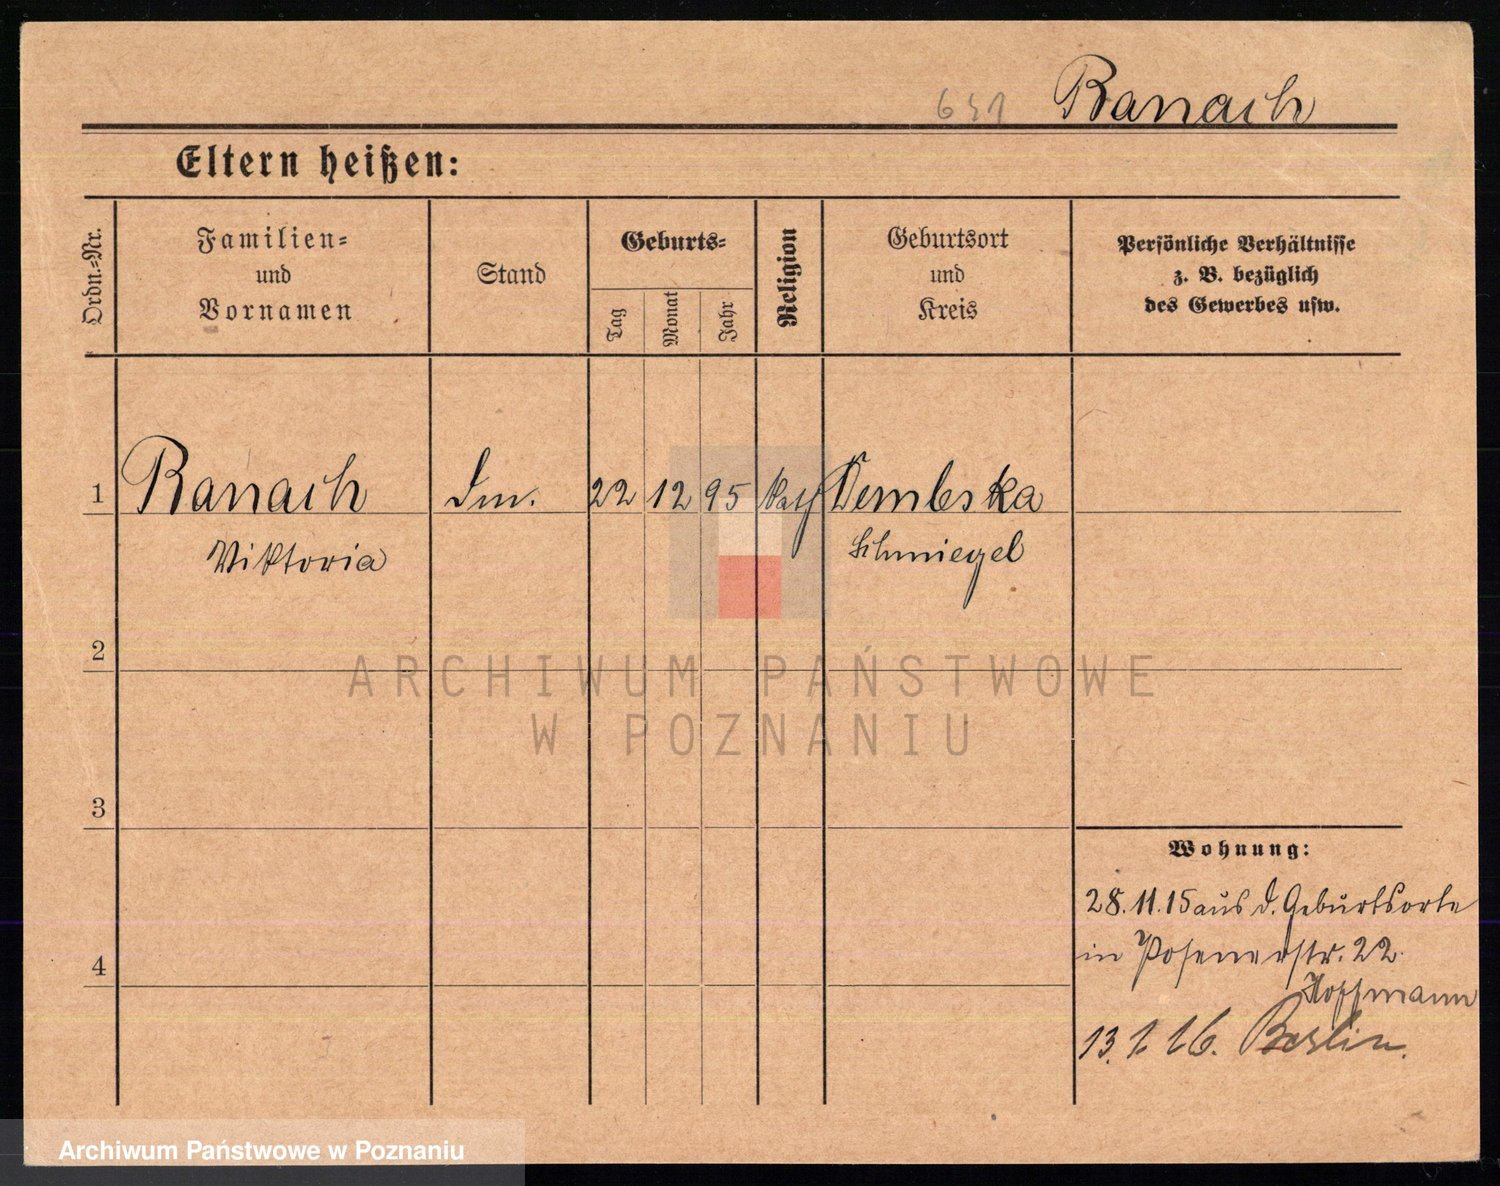 651 Banach
Eltern heißen:
Ordn.-Nr.
Familien-
und
Vornamen
Stand
Geburts-
Tag
Monat
Jahr
Religion
Geburtsort
und
Kreis
Persönliche Verhältnisse
z. B. bezüglich
des Gewerbes usw.
1 Banach 22 12 95 kath Dembska
Viktoria Schmiegel
2
ARCHIWUM PAŃSTWOWE
W POZNANIU
3
Wohnung:
28.11.15 aus d. Geburtsorte
4 in Posenerstr. 22.
Hoffmann
13.1.16. Berlin.
Archiwum Państwowe w Poznaniu